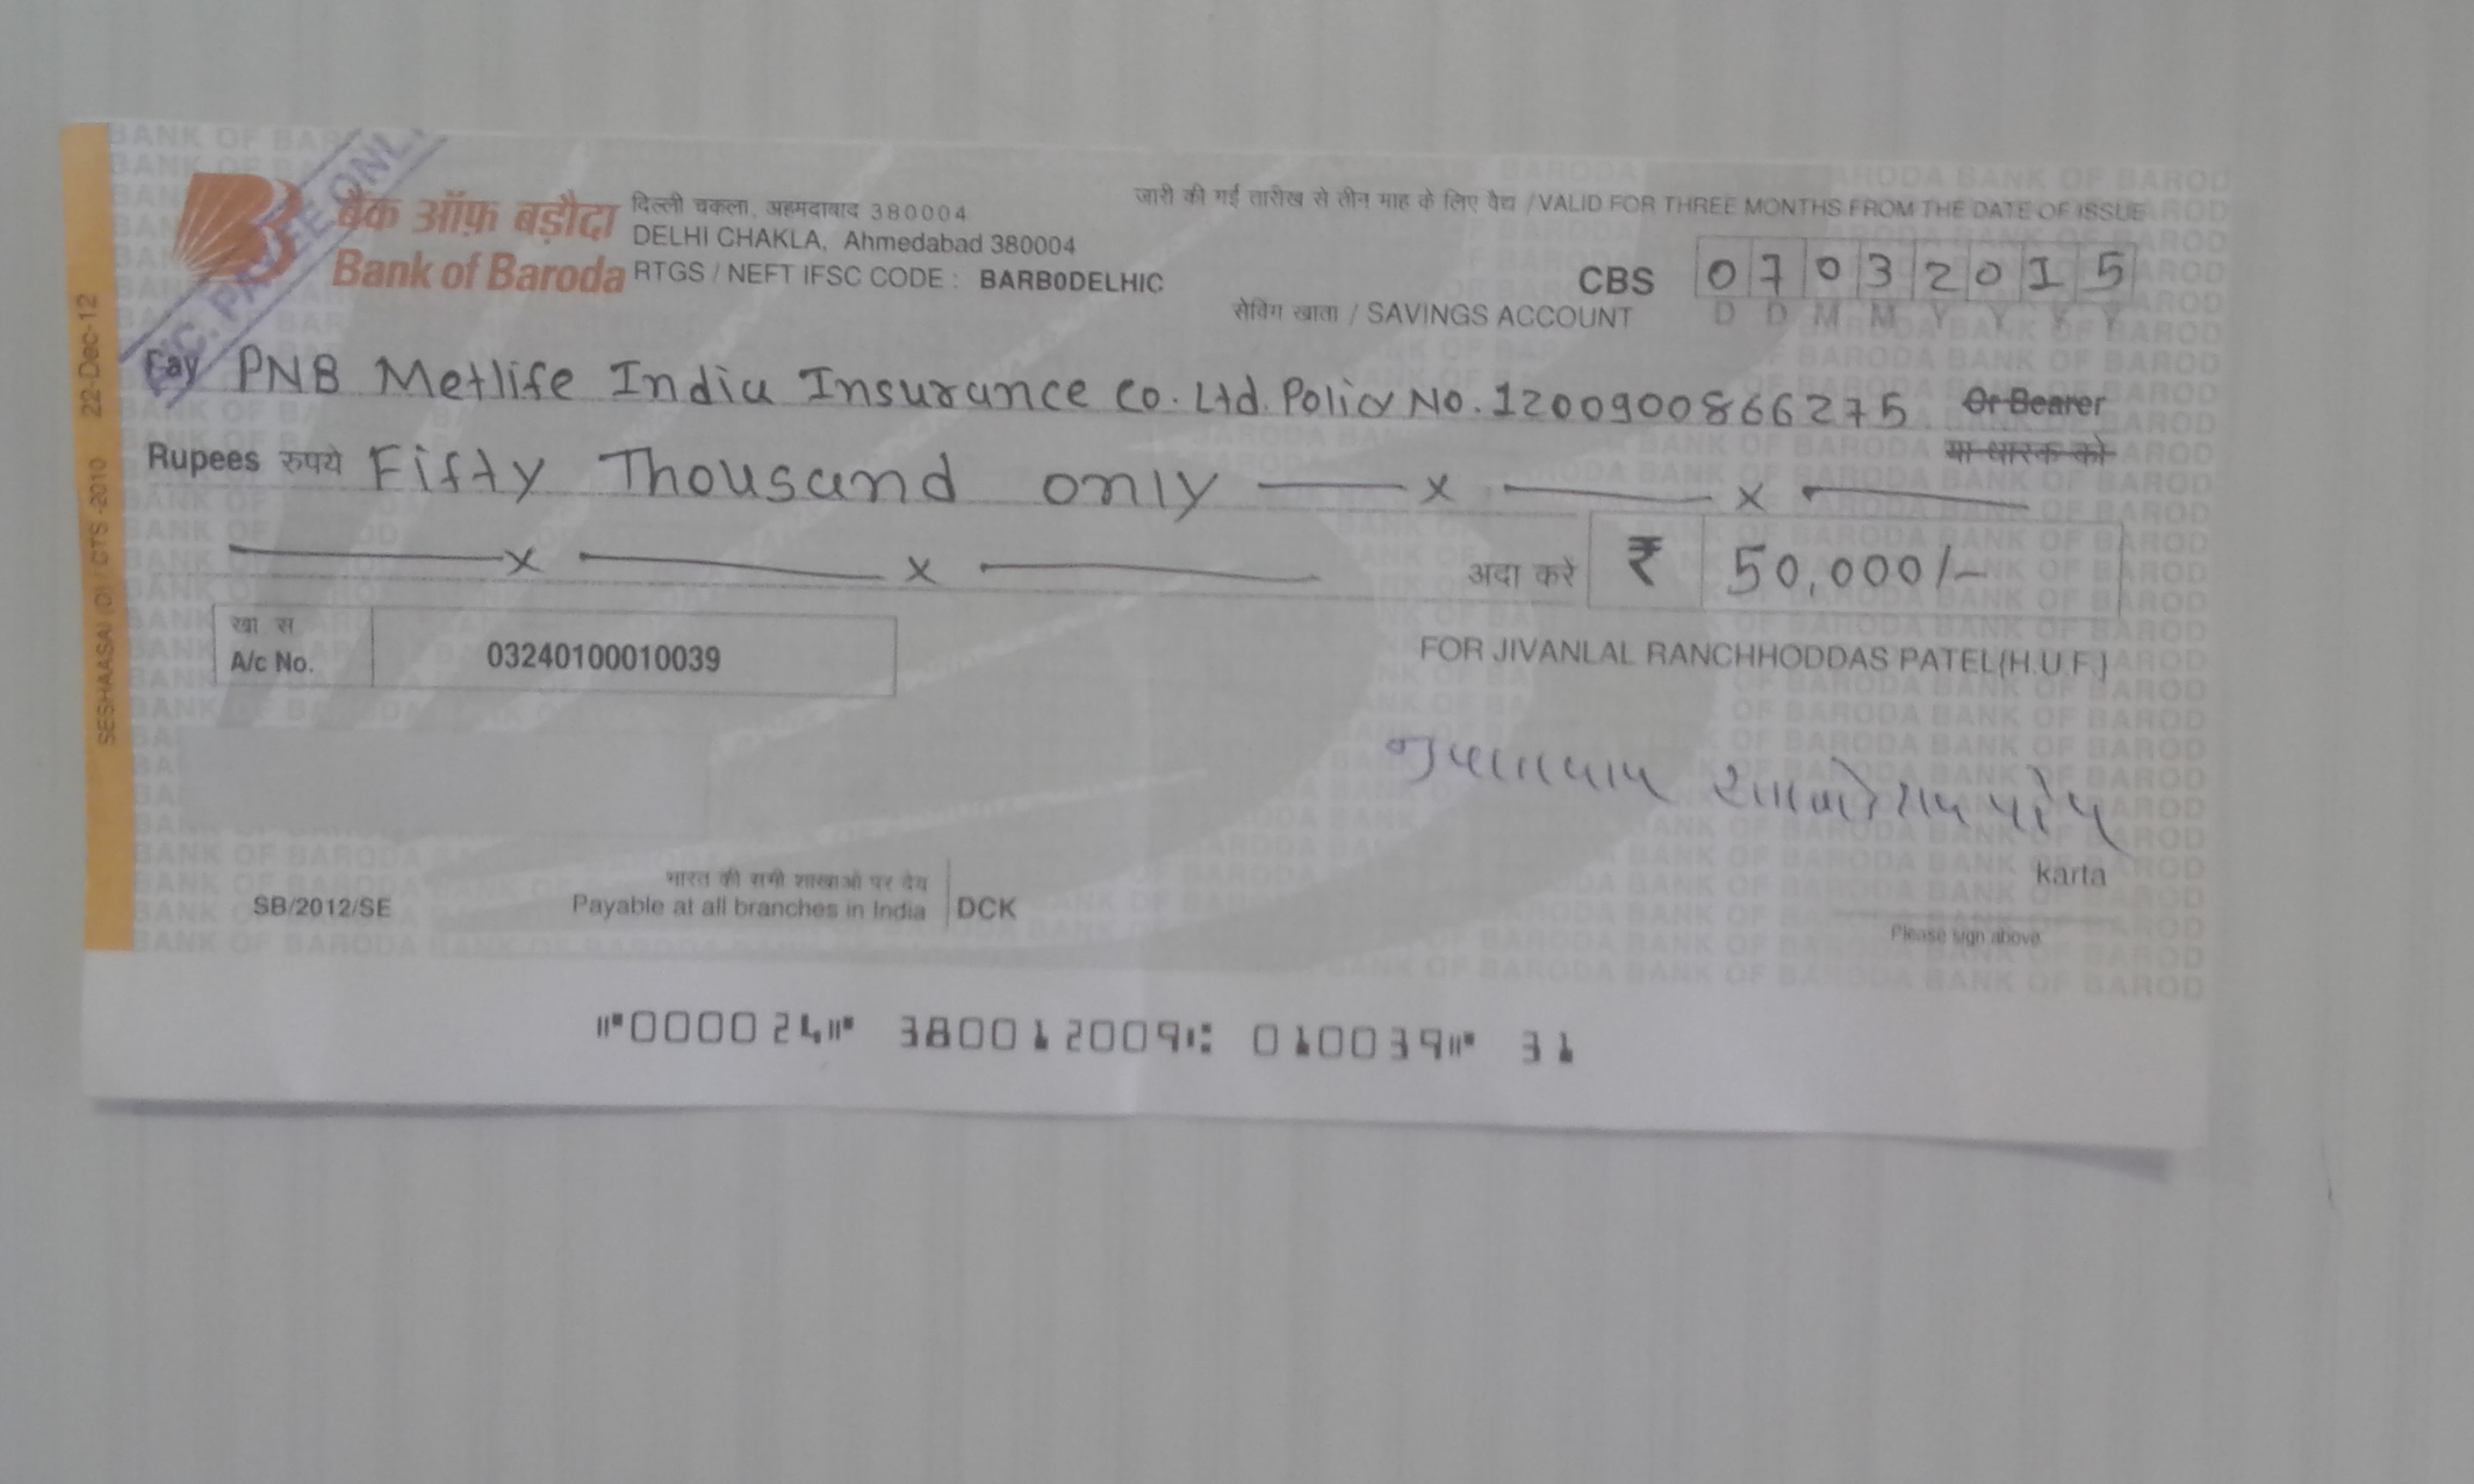 A/C. PAYEE ONLY
बैंक ऑफ़ बड़ौदा
Bank of Baroda
दिल्ली चकला, अहमदाबाद 380004
DELHI CHAKLA, Ahmedabad 380004
RTGS / NEFT IFSC CODE : BARB0DELHIC
जारी की गई तारीख से तीन माह के लिए वैद्य / VALID FOR THREE MONTHS FROM THE DATE OF ISSUE
CBS 07032015
D D M M Y Y Y Y
सेविंग खाता / SAVINGS ACCOUNT
Pay PNB Metlife India Insurance Co. Ltd. Policy No. 1200900866275 Or Bearer
या धारक को
Rupees रुपये Fifty Thousand only — x — x —
— x — x — अदा करें ₹ 50,000/-
खा. स.
A/c No. 03240100010039
FOR JIVANLAL RANCHHODDAS PATEL(H.U.F.)
karta
Please sign above
SB/2012/SE
भारत की सभी शाखाओं पर देय
Payable at all branches in India DCK
000024 380012009 010039 31
SESHAASAI (D) / CTS -2010 22-Dec-12